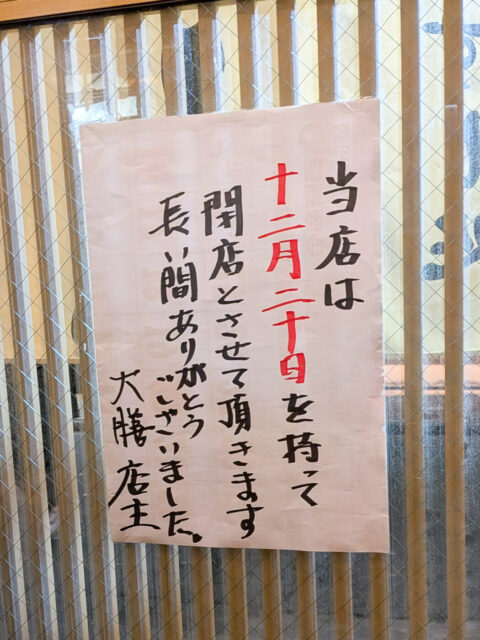 当店は
十二月二十日を持って
閉店とさせて頂きます
長い間ありがとう
ございました。
大膳 店主